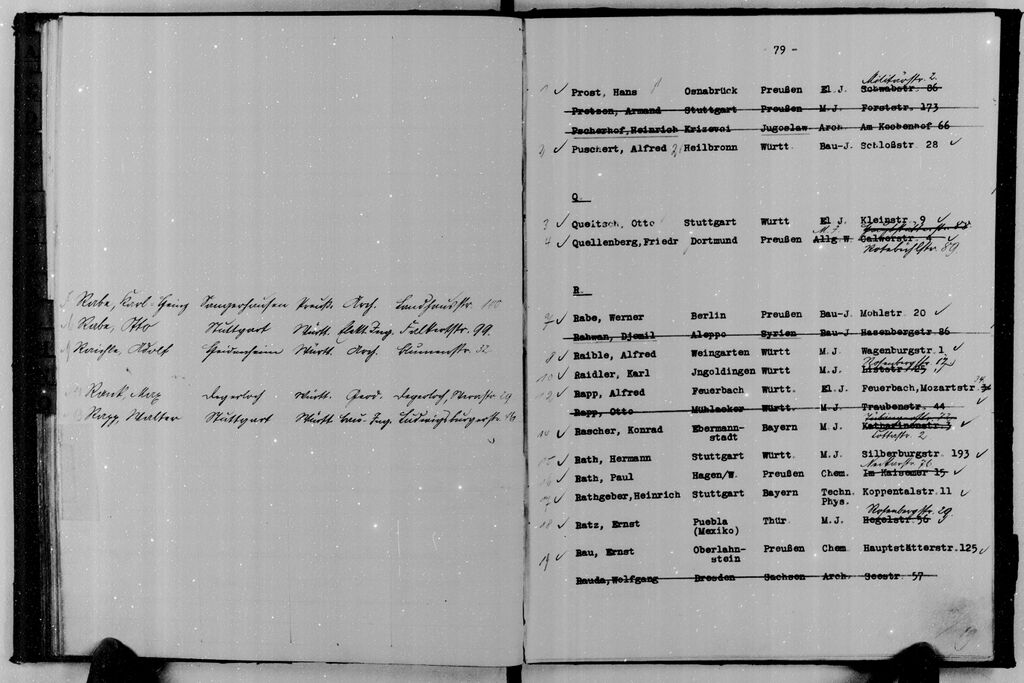 Rabe, Karl-Heinz Sangerhausen Preuß. Arch. Landhausstr. 
Rabe, Otto Stuttgart Württ. Elekt. Ing. Falkertstr. 99.
Raichle, Adolf Heidenheim Württ. Arch. Blumenstr. 32
Rank, Max Degerloch Württ. Degerloch,
Rapp, Walter Stuttgart Württ. Bau-Ing. Ludwigsburgerstr.
79 -
Militärstr. 2.
1 ✓ Prost, Hans Osnabrück Preußen El J. Schwabstr. 86
Pretzen, Armand Stuttgart Preußen M.J. Forststr. 173
Pscherhof, Heinrich Krizevci Jugoslaw. Arch. Am Kochenhof 66
2 ✓ Puschert, Alfred Heilbronn Württ. Bau-J. Schloßstr 28 ✓
Q.
3 ✓ Queitsch, Otto Stuttgart Württ El J. Kleinstr. 9 ✓
M. J.
4 ✓ Quellenberg, Friedr Dortmund Preußen Allg W Calwerstr.
Rotebühlstr. 89.
R.
7 ✓ Rabe, Werner Berlin Preußen Bau-J. Mohlstr. 20 ✓
Rahwan, Djemil Aleppo Syrien Bau-J. Hasenbergstr 86
8 ✓ Raible, Alfred Weingarten Württ M.J. Wagenburgstr. 1 ✓
Rotenbergstr. 17
10 ✓ Raidler, Karl Jngoldingen Württ M.J.
12 ✓ Rapp, Alfred Feuerbach Württ. El.J. Feuerbach, Mozartstr.
Rapp, Otto Mühlacker Württ. M.J. Traubenstr. 44
14 ✓ Rascher, Konrad Ebermann- Bayern M.J. Katharinenstr. 3 ✓
stadt Cottastr. 2
15 ✓ Rath, Hermann Stuttgart Württ. M.J. Silberburgstr. 193 ✓
Neckarstr. 76
16 ✓ Rath, Paul Hagen/W. Preußen Chem. Im Kaisemer 15 ✓
17 ✓ Rathgeber, Heinrich Stuttgart Bayern Techn. Koppentalstr. 11 ✓
Phys.
Rotenbergstr. 29.
18 ✓ Ratz, Ernst Puebla Thür. M.J. Hegelstr. 56 ✓
(Mexiko)
19 ✓ Rau, Ernst Oberlahn- Preußen Chem Hauptstätterstr. 125 ✓
stein
Rauda, Wolfgang Dresden Sachsen Arch. Seestr. 57